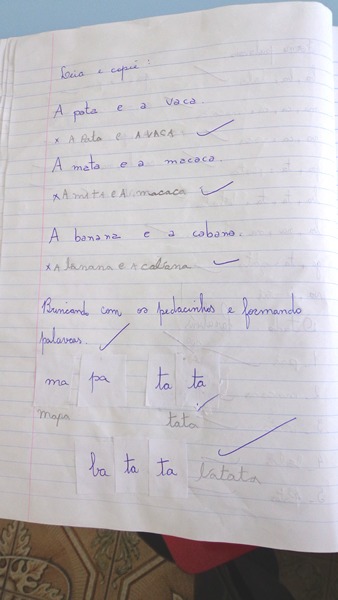 Leia e copie:
A pata e a vaca.
x A Pata e A VACA
A mata e a macaca.
x A mata e A macaca
A banana e a cabana.
x A banana e A cabana
Brincando com os pedacinhos e formando
palavras.
ma pa ta ta
mapa tata
ba ta ta batata